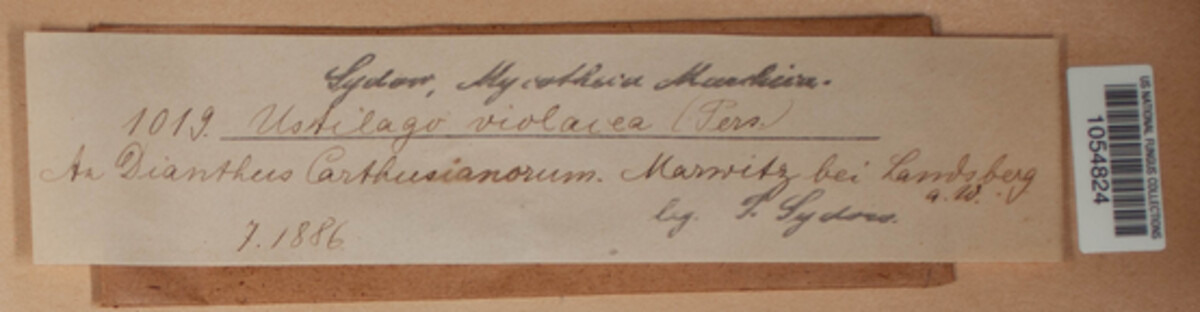 Sydow, Mycotheca Marchica.
1019. Ustilago violacea (Pers.)
An Dianthus Carthusianorum. Marwitz bei Landsberg
a. W.
leg. P. Sydow.
7. 1886
US NATIONAL FUNGUS COLLECTIONS
1054824